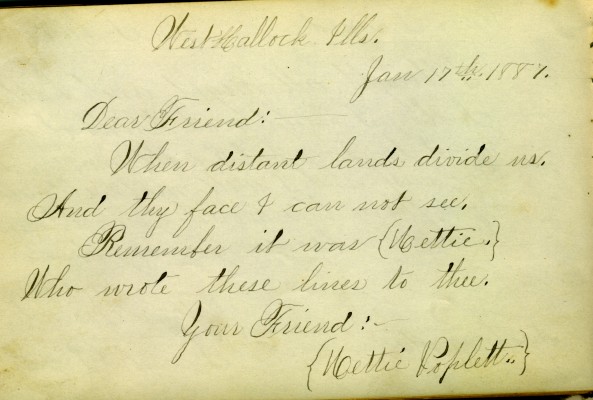 West Hallock Ills.
Jan 17th. 1887.
Dear Friend:—
When distant lands divide us.
And thy face I can not see.
Remember it was {Nettie.}
Who wrote these lines to thee.
Your Friend:—
{Nettie Poplett..}